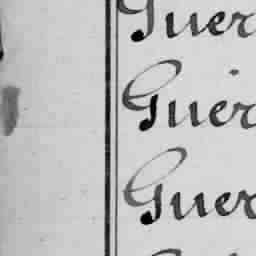 Guer
Guer
Guer